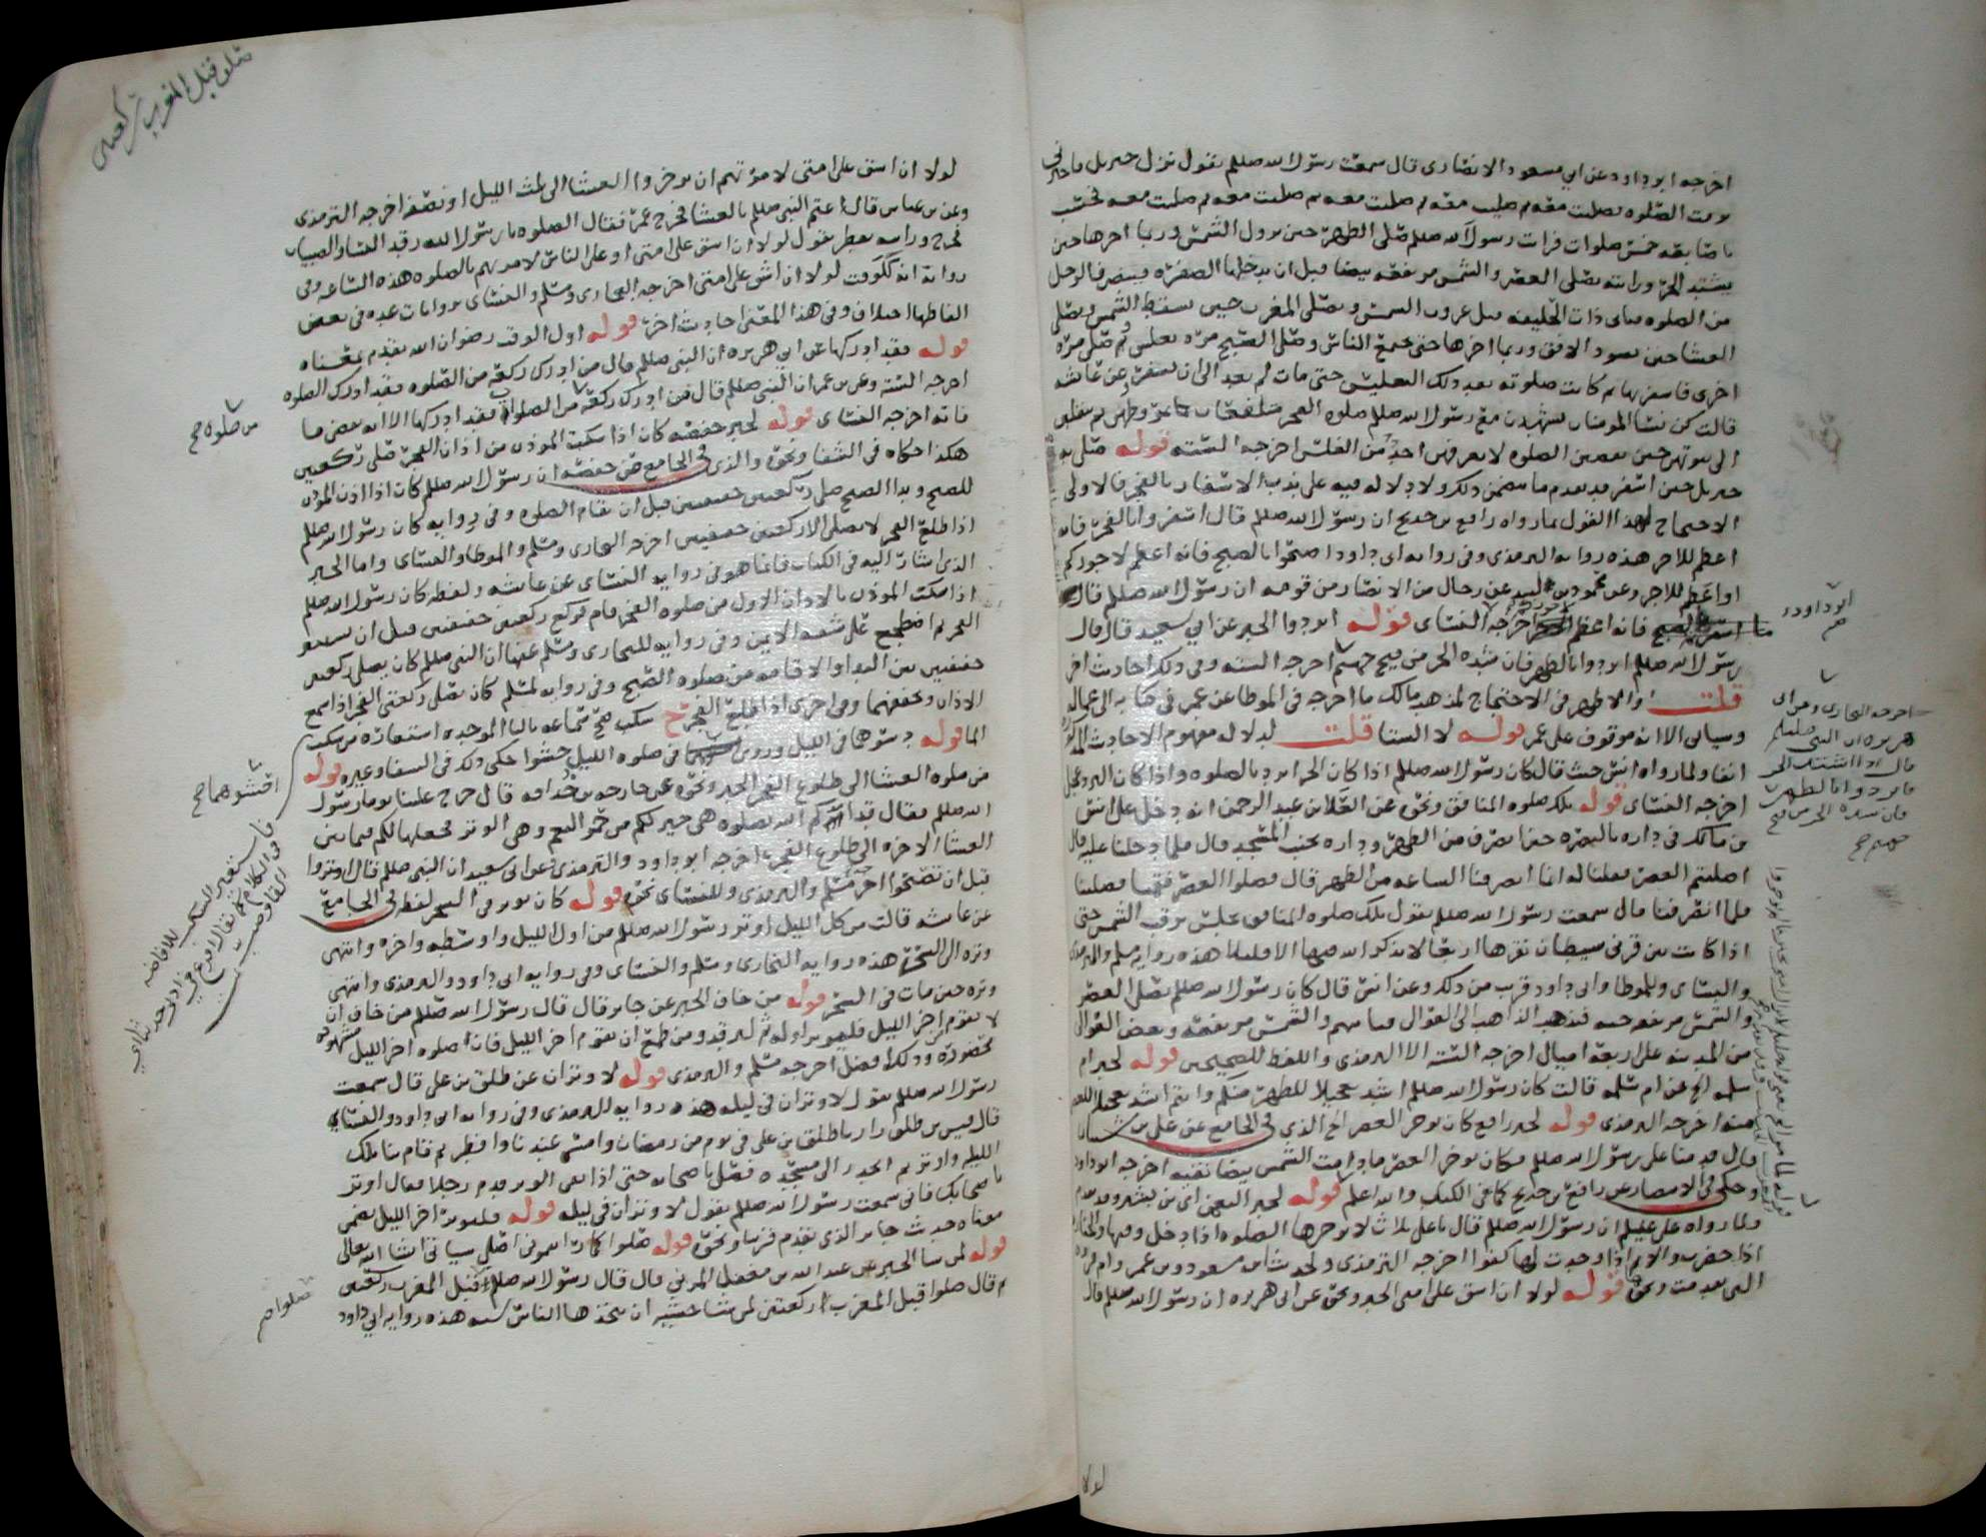 اخرجه ابو داود عن ابي مسعود الانصاري قال سمعت رسول الله صللم يقول نزل جبريل فاخبرني
بوقت الصلوه فصليت معه ثم صليت معه ثم صليت معه ثم صليت معه ثم صليت معه يحسب
باصابعه خمس صلوات فرايت رسول الله صللم صلى الظهر حين تزول الشمس وربما اخرها حين
يشتد الحر ورايته يصلي العصر والشمس مرتفعه بيضا قبل ان يدخلها الصفره فينصرف الرجل
من الصلوه فياتي ذا الحليفه قبل غروب الشمس ويصلي المغرب حين تسقط الشمس ويصلي
العشا حين يسود الافق وربما اخرها حتى يجمع الناس وصلى الصبح مره بغلس ثم صلى مره
اخرى فاسفر بها ثم كانت صلوته بعد ذلك التغليس حتى مات لم يعد الى ان يسفر وعن عائشه
قالت كن نسا المومنات يشهدن مع رسول الله صللم صلوه الفجر متلفعات بمروطهن ثم ينقلبن
الى بيوتهن حين يقضين الصلوه لا يعرفهن احد من الغلس اخرجه الستة قوله صلى به
جبريل حين اسفر قد تقدم ما يتضمن ذلك ولا دلاله فيه على ندب الاسفار بالفجر فالاولى
الاحتجاج لهذا القول بما رواه رافع بن خديج ان رسول الله صللم قال اسفروا بالفجر فانه
اعظم للاجر هذه روايه الترمذي وفي روايه ابي داود اصبحوا بالصبح فانه اعظم لاجوركم
او اعظم للاجر وعن محمود بن لبيد عن رجال من الانصار من قومه ان رسول الله صللم قال
ما اسفرتم بالصبح فانه اعظم اخرجه النساى قوله ابردوا الخبر عن ابي سعيد قال قال
رسول الله صللم ابردوا بالظهر فان شده الحر من فيح جهنم اخرجه السته وفي ذلك احاديث اخر
قلت والاظهر في الاحتجاج لمذهب مالك ما اخرجه في الموطا عن عمر في كتابه الى عماله
وسياتي الا انه موقوف على عمر قوله لا الشتا قلت لدلاله مفهوم الاحاديث المذكوره
انفا ولما رواه انس حيث قال كان رسول الله صللم اذا كان الحر ابرد بالصلوه واذا كان البرد عجل
اخرجه النساى قوله تلك صلوه المنافق ونحوه عن العلا بن عبد الرحمن انه دخل على انس
بن مالك في داره بالبصره حين انصرف من الظهر وداره بجنب المسجد قال فلما دخلنا عليه قال
اصليتم العصر فقلنا له انما انصرفنا الساعه من الظهر قال فصلوا العصر فقمنا فصلينا
فلما انصرفنا قال سمعت رسول الله صللم يقول تلك صلوه المنافق يجلس يرقب الشمس حتى
اذا كانت بين قرني شيطان نقرها اربعا لا يذكر الله فيها الا قليلا هذه روايه مسلم والترمذي
والنساى وللموطا وابي داود قريب من ذلك وعن انس قال كان رسول الله صللم يصلي العصر
والشمس مرتفعه حيه فيذهب الذاهب الى العوالي فياتيهم والشمس مرتفعه وبعض العوالي
من المدينه على اربعة اميال اخرجه الستة الا الترمذي واللفظ للصحيحين قوله لخبر ام
سلمه الخ عن ام سلمه قالت كان رسول الله صللم اشد تعجيلا للظهر منكم وانتم اشد تعجيلا للعصر
منه اخرجه الترمذي قوله لخبر رافع كان يوخر العصر الخ الذي في الجامع عن علي بن شيبان
قال قدمنا على رسول الله صللم فكان يوخر العصر ما دامت الشمس بيضا نقيه اخرجه ابو داود
وحكى في الانتصار عن رافع بن خديج كما في الكتاب والله اعلم قوله لخبر التعجيل اي من
ولما رواه علي عليلم ان رسول الله صللم قال يا علي ثلاث لا توخرها الصلوه اذا دخل وقتها والجنازه
اذا حضرت والايم اذا وجدت لها كفوا اخرجه الترمذي ولحديث ابن مسعود وبن عمر وام فروه
التي تقدمت ونحوها قوله لولا ان اشق على امتي الخبر ونحوه عن ابي هريره ان رسول الله صللم قال
لولا
ابو داود
صح
اخرجه البخاري وعن ابي
هريره ان النبي صللم
قال اذا اشتد الحر
فابردوا بالظهر
فان شده الحر من فيح
جهنم صح
صلوا قبل المغرب ركعتين
لولا ان اشق على امتي لامرتهم ان يوخروا العشا الى ثلث الليل او نصفه اخرجه الترمذي
وعن بن عباس قال اعتم النبي صللم بالعشا فخرج عمر فقال الصلوه يا رسول الله رقد النسا والصبيان
فخرج وراسه يقطر يقول لولا ان اشق على امتي او على الناس لامرتهم بالصلوه هذه الساعه وفي
روايه انه للوقت لولا ان اشق على امتي اخرجه البخاري ومسلم والنساى بروايات عده في بعض
الفاظها اختلاف وفي هذا المعنى احاديث اخر قوله اول الوقت رضوان الله تقدم بمعناه
قوله فقد ادركها عن ابي هريره ان النبي صللم قال من ادرك ركعه من الصلوه فقد ادرك الصلوه
اخرجه الستة وعن بن عمر ان النبي صللم قال من ادرك ركعه من الصلوات فقد ادركها الا انه يقضي ما
فاته اخرجه النساى قوله لخبر حفصه كان اذا سكت الموذن من اذان الفجر صلى ركعتين
هكذا حكاه في الشفا ونحوه والذي في الجامع عن حفصه ان رسول الله صللم كان اذا اذن الموذن
للصبح وبدا الصبح صلى ركعتين خفيفتين قبل ان تقام الصلوه وفي روايه كان رسول الله صللم
اذا طلع الفجر لا يصلي الا ركعتين خفيفتين اخرجه البخاري ومسلم والموطا والنساى واما الخبر
الذي اشار اليه في الكتاب فانما هو في روايه النساى عن عائشه ولفظه كان رسول الله صللم
اذا سكت الموذن بالاذان الاول من صلوه الفجر قام فركع ركعتين خفيفتين قبل ان يستبين
الفجر ثم اضطجع على شقه الايمن وفي روايه للبخاري ومسلم عنها ان النبي صللم كان يصلي ركعتين
خفيفتين بين الندا والاقامه من صلوه الصبح وفي روايه لمسلم كان يصلي ركعتي الفجر اذا سمع
الاذان ويخففهما وفي اخرى اذا طلع الفجر ح سكب صح سماعه بالبا الموحده استعاره من سكب
الما قوله دسوهما في الليل وروي في صلوه الليل حشوا حكى ذلك في الشفا وغيره قوله
من صلوه العشا الى طلوع الفجر الخبر ونحوه عن خارجه بن حذافه قال خرج علينا يوما رسول
الله صللم فقال قد امركم الله بصلوه هي خير لكم من حمر النعم وهي الوتر فجعلها لكم فيما بين
العشا الاخره الى طلوع الفجر اخرجه ابو داود والترمذي وعن ابي سعيد ان النبي صللم قال اوتروا
قبل ان تصبحوا اخرجه مسلم والترمذي وللنساى نحوه قوله كان يوتر في السحر لفظه في الجامع
عن عائشه قالت من كل الليل اوتر رسول الله صللم من اول الليل واوسطه واخره وانتهى
وتره الى السحر هذه روايه البخاري ومسلم والنساى وفي روايه ابي داود والترمذي وانتهى
وتره حين مات في السحر قوله من خاف الخبر عن جابر قال قال رسول الله صللم من خاف ان
لا يقوم اخر الليل فليوتر اوله ثم ليرقد ومن طمع ان يقوم اخر الليل فان صلوه اخر الليل مشهوده
محضورة وذلك افضل اخرجه مسلم والترمذي قوله لا وتران عن طلق بن علي قال سمعت
رسول الله صللم يقول لا وتران في ليله هذه روايه الترمذي وفي روايه ابي داود والنساى
قال قيس بن طلق زارنا طلق بن علي في يوم من رمضان وامسى عندنا وافطر ثم قام بنا تلك
الليله واوتر ثم انحدر الى مسجده فصلى باصحابه حتى اذا بقي الوتر قدم رجلا فقال اوتر
باصحابك فاني سمعت رسول الله صللم يقول لا وتران في ليله قوله فليوتر اخر الليل بمعنى
معناه حديث جابر الذي تقدم قريبا ونحوه قوله صلوا كما رايتموني اصلي سياتي ان شا الله تعالى
قوله لمن شا الخبر عن عبد الله بن مغفل المزني قال قال رسول الله صللم صلوا قبل المغرب ركعتين
ثم قال صلوا قبل المغرب ركعتين لمن شا خشية ان يتخذها الناس سنه هذه روايه ابي داود
من صلوه صح
احشوهما صح
صلوا صح